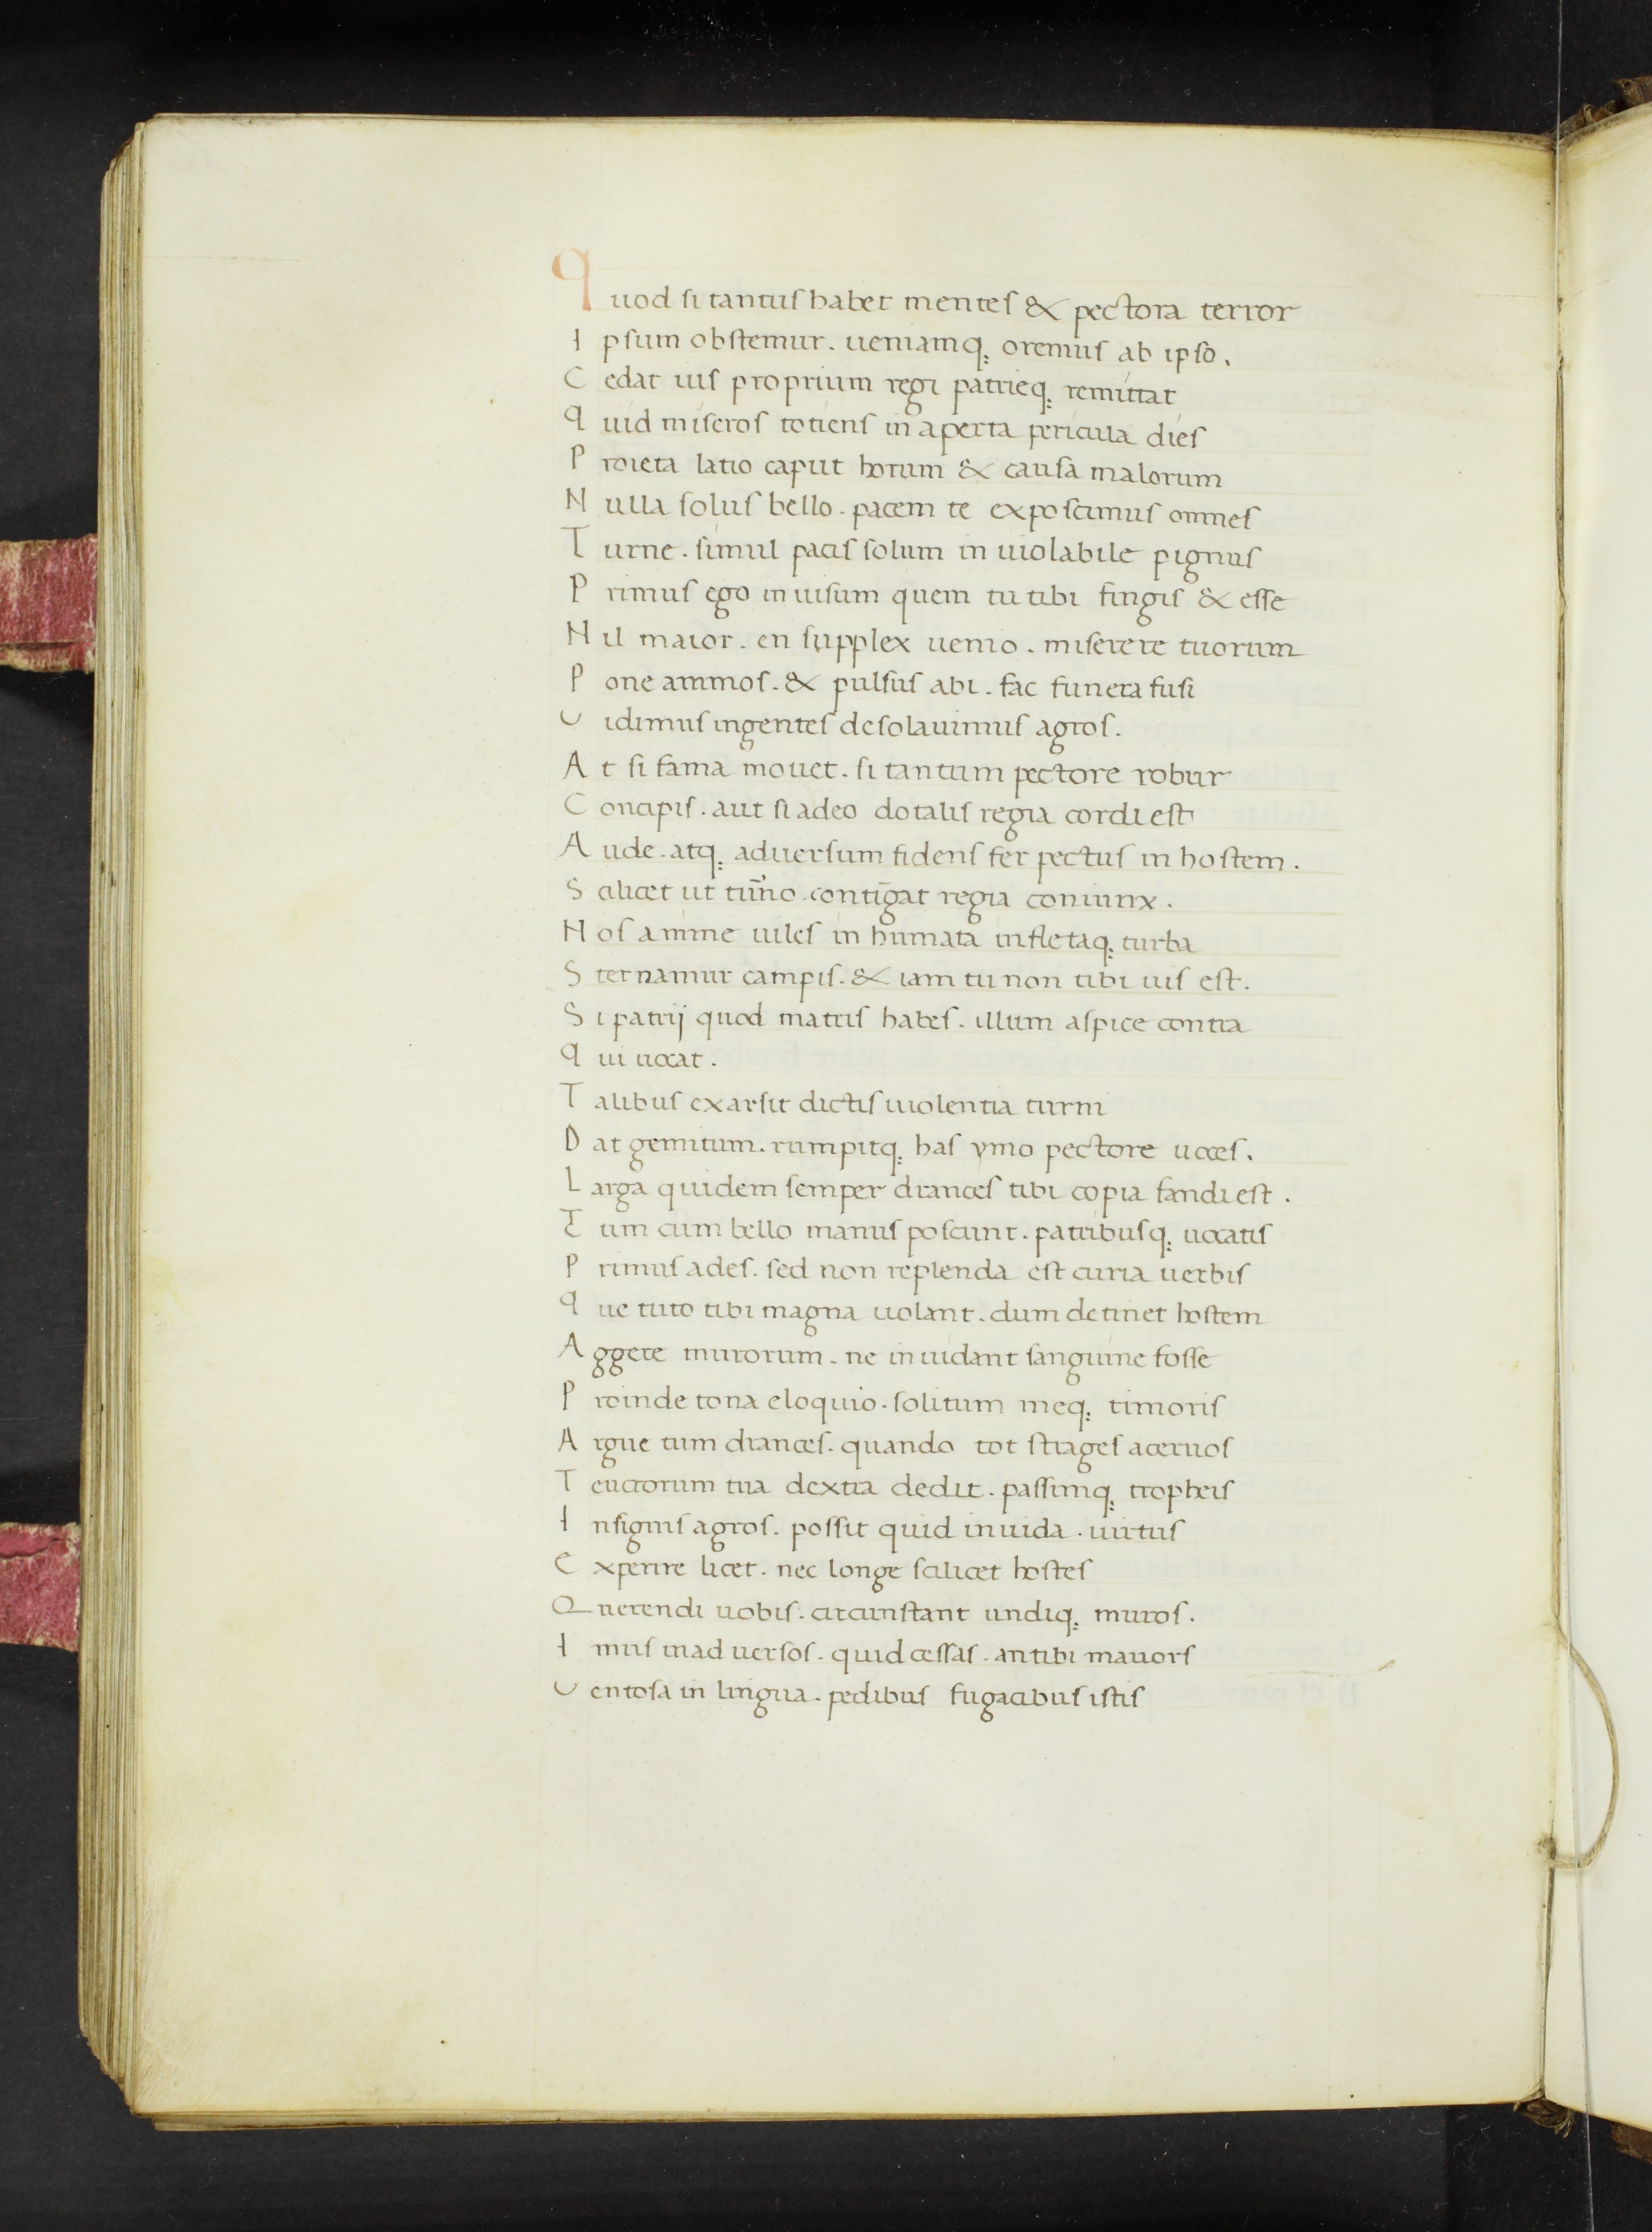 Quod si tantus habet mentes & pectora terror
Ipsum obstemur. ueniamq; oremus ab ipso.
Cedat ius proprium regi patrieq; remittat
quid miseros totiens in aperta pericula cies
Proieta latio caput horum & causa malorum
Nulla solus bello. pacem te exposcimus omnes
Turne. simul pacis solum inuiolabile pignus
Primus ego inuisum quem tu tibi fingis & esse
Nil maior. en supplex uenio. miserere tuorum
Pone animos. & pulsus abi. fac funera fusi
Uidimus ingentes desolauimus agros.
At si fama mouet. si tantum pectore robur
Concipis. aut si adeo dotalis regia cordi est
Aude. atq; aduersum fidens fer pectus in hostem.
Scilicet ut turno. contingat regia coniunx.
Nos anime uiles inhumata infletaq; turba
Sternamur campis. & iam tu non tibi uis est.
Si patrij quod matris habes. illum aspice contra
qui uocat.
Talibus exarsit dictis uiolentia turni
Dat gemitum. rumpitq; has ymo pectore uoces.
Larga quidem semper drances tibi copia fandi est.
Tum cum bello manus poscunt. patribusq; uocatis
Primus ades. sed non replenda est curia uerbis
que tuto tibi magna uolant. dum detinet hostem
Aggere murorum. ne inuidant sanguine fosse
Proinde tona eloquio. solitum meq; timoris
Argue tum drances. quando tot strages aceruos
Teucrorum tua dextra dedit. passimq; tropheis
Insignis agros. possit quid inuida. uirtus
Experire licet. nec longe scilicet hostes
Querendi uobis. circunstant undiq; muros.
Imus inaduersos. quid cessas. an tibi mauors
Uentosa in lingua. pedibus fugacibus istis